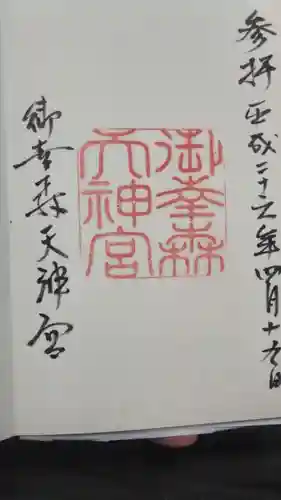 参拝 平成二十六年四月十九日
御幸森
天神宮
御幸森天神宮